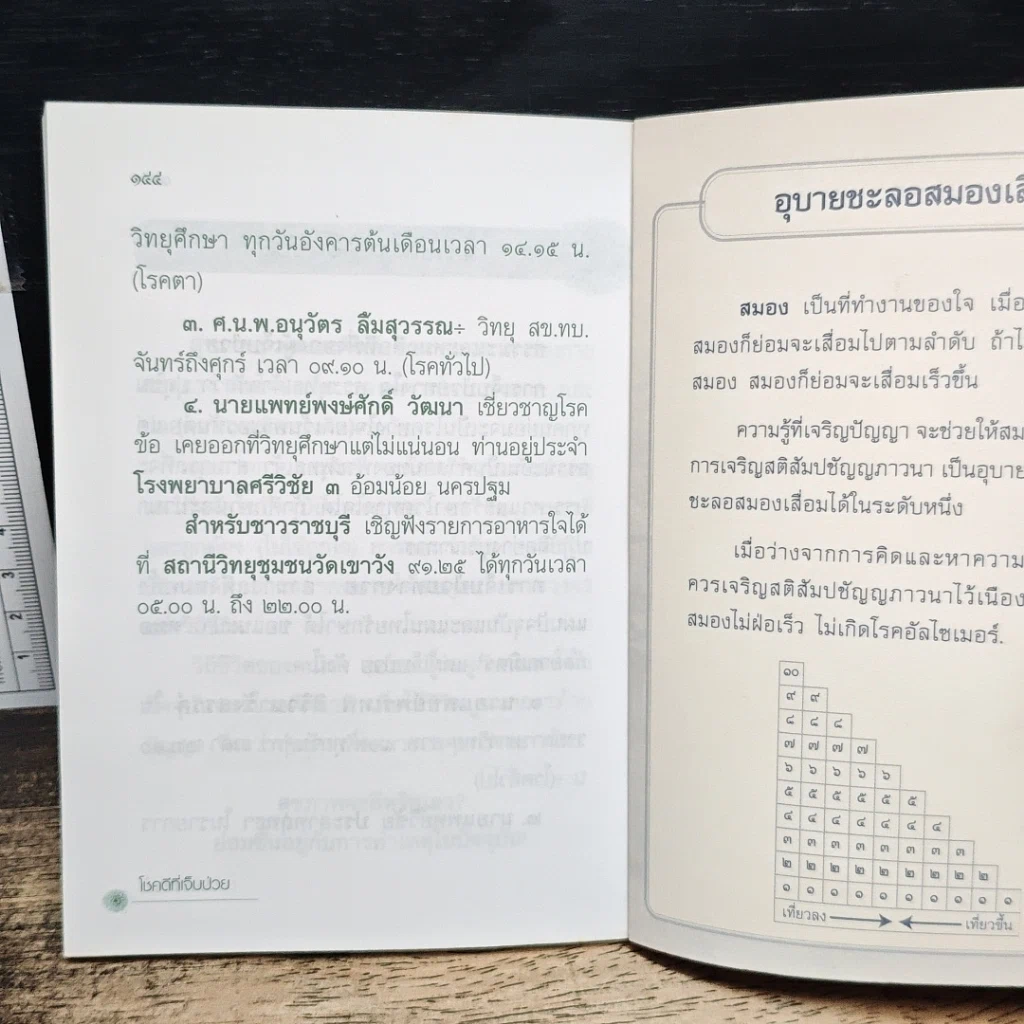 ๑๔๔
วิทยุศึกษา ทุกวันอังคารต้นเดือนเวลา ๑๔.๑๕ น.
(โรคตา)
๓. ศ.น.พ.อนุวัตร ลิ้มสุวรรณ÷ วิทยุ สข.ทบ.
จันทร์ถึงศุกร์ เวลา ๐๙.๑๐ น. (โรคทั่วไป)
๔. นายแพทย์พงษ์ศักดิ์ วัฒนา เชี่ยวชาญโรค
ข้อ เคยออกที่วิทยุศึกษาแต่ไม่แน่นอน ท่านอยู่ประจำ
โรงพยาบาลศรีวิชัย ๓ อ้อมน้อย นครปฐม
สำหรับชาวราชบุรี เชิญฟังรายการอาหารใจได้
ที่ สถานีวิทยุชุมชนวัดเขาวัง ๙๑.๒๕ ได้ทุกวันเวลา
๐๕.๐๐ น. ถึง ๒๒.๐๐ น.
โชคดีที่เจ็บป่วย
อุบายชะลอสมองเสื
สมอง เป็นที่ทำงานของใจ เมื่อ
สมองก็ย่อมจะเสื่อมไปตามลำดับ ถ้าไ
สมอง สมองก็ย่อมจะเสื่อมเร็วขึ้น
ความรู้ที่เจริญปัญญา จะช่วยให้สม
การเจริญสติสัมปชัญญภาวนา เป็นอุบาย
ชะลอสมองเสื่อมได้ในระดับหนึ่ง
เมื่อว่างจากการคิดและหาความ
ควรเจริญสติสัมปชัญญภาวนาไว้เนือง
สมองไม่ฝ่อเร็ว ไม่เกิดโรคอัลไซเมอร์.
๑๐
๙ ๙
๘ ๘ ๘
๗ ๗ ๗ ๗
๖ ๖ ๖ ๖ ๖
๕ ๕ ๕ ๕ ๕ ๕
๔ ๔ ๔ ๔ ๔ ๔ ๔
๓ ๓ ๓ ๓ ๓ ๓ ๓ ๓
๒ ๒ ๒ ๒ ๒ ๒ ๒ ๒ ๒
๑ ๑ ๑ ๑ ๑ ๑ ๑ ๑ ๑ ๑
เที่ยวลง เที่ยวขึ้น
4
3
2
1